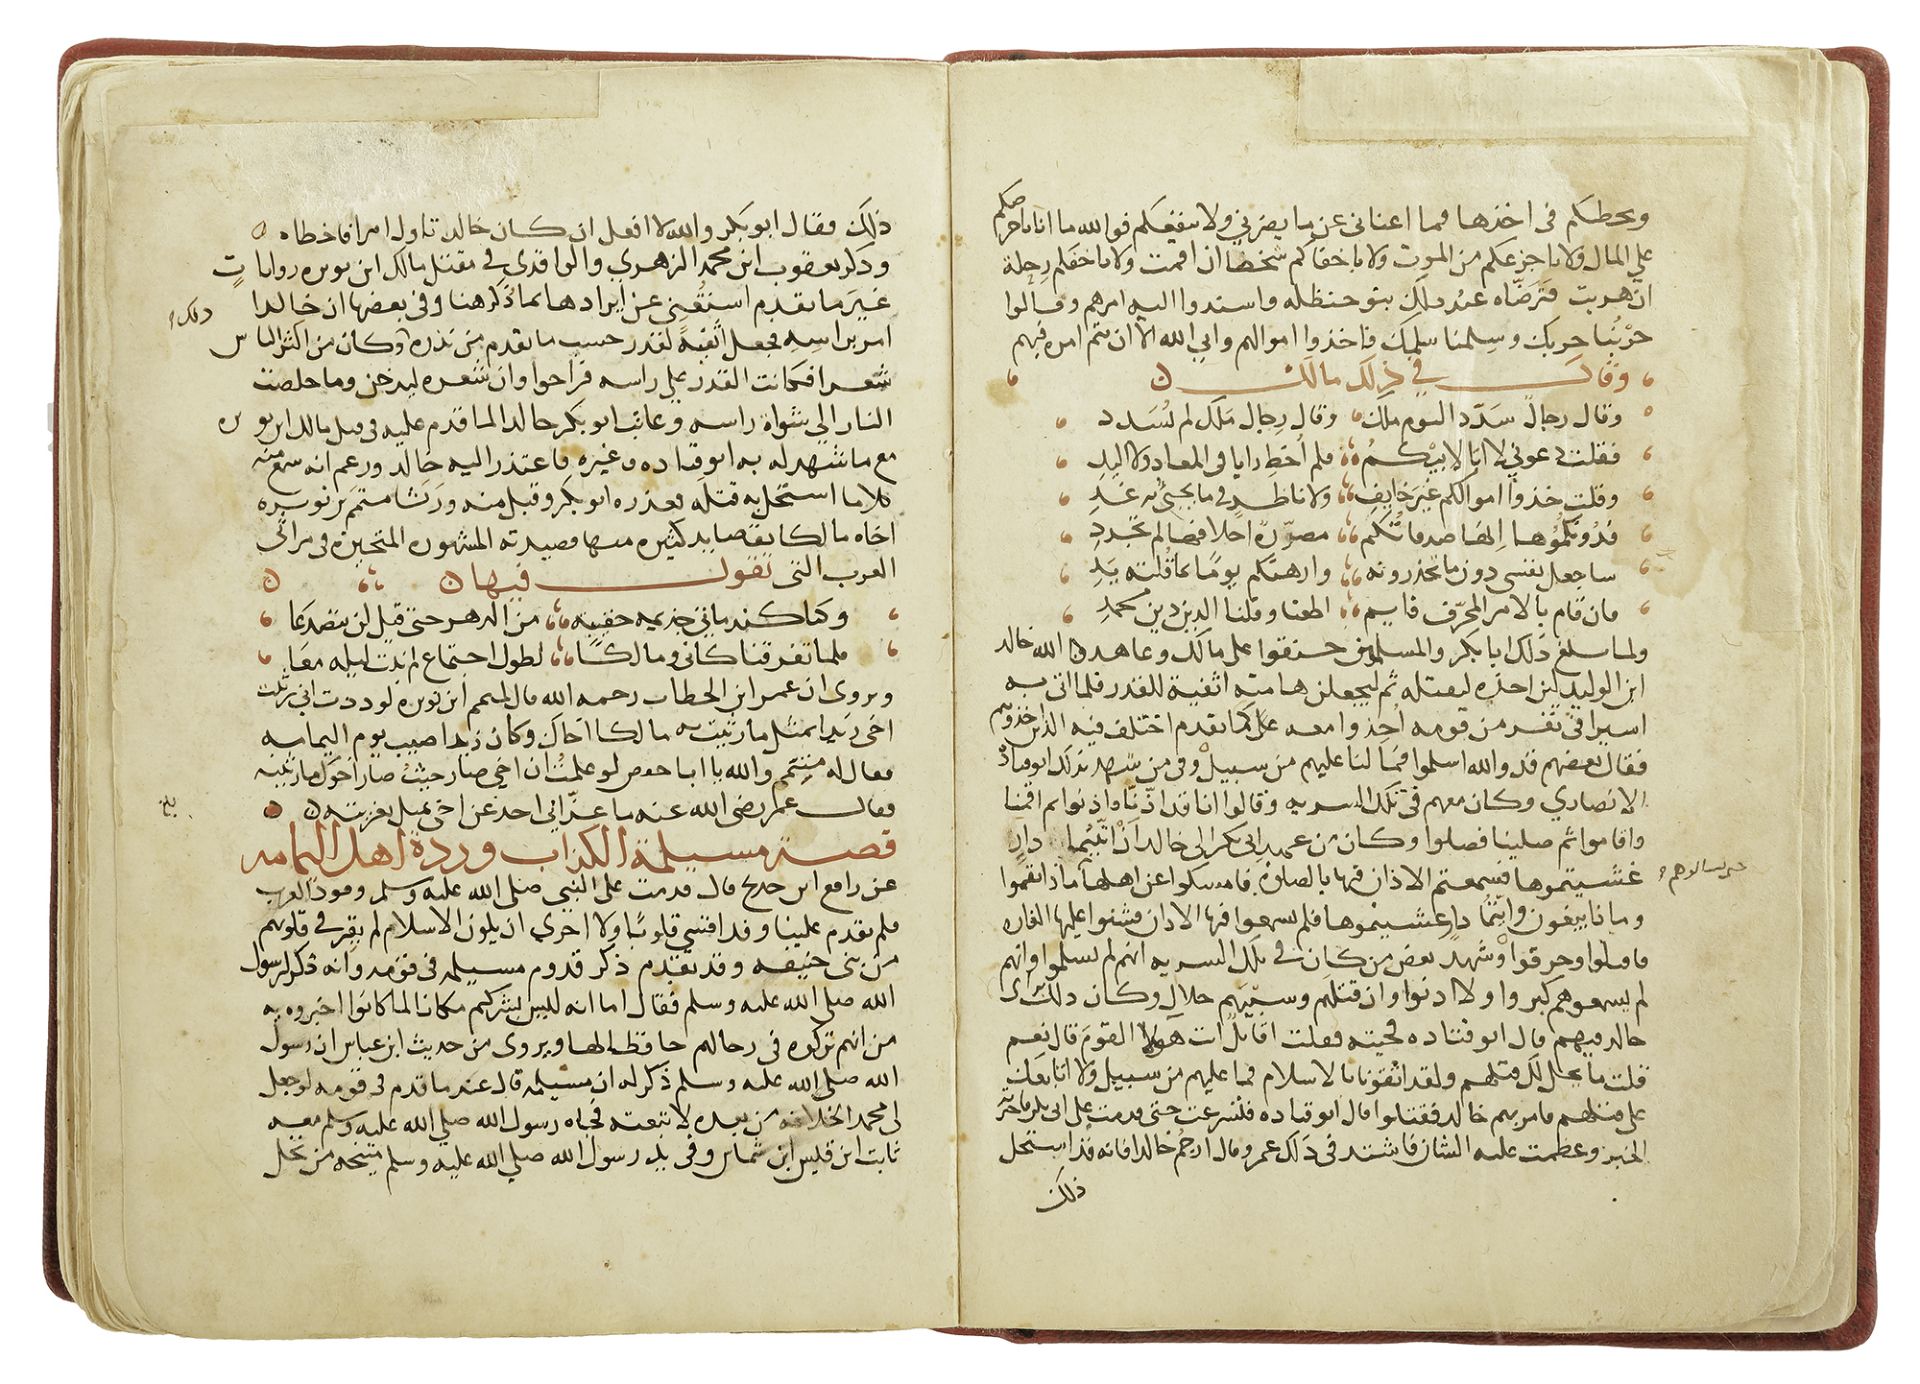 ويحطكم في اخذها فما اغناني عن ما يضرني ولا ينفعكم فوالله ما انا باحرصكم
على المال ولا باجزعكم من الموت ولا باخفاكم شخصا ان اقمت ولا باخفكم رحلة
ان هربت فترضاه عند ذلك بنو حنظله واسندوا اليه امرهم وقالوا
حربنا حربك وسلمنا سلمك فاخذوا اموالهم وابي الله الا ان يتم امره فيهم
وقال في ذلك مالك
وقال رجال سدد اليوم مالك وقال رجال ملك لم يسدد
فقلت دعوني لا ابا لابيكم فلم اخط رايا في المعاد ولا اليد
وقلت خذوا اموالكم غير خايف ولا ناظر في ما يجئ به غدِ
فدونكموها انها صدقاتكم مصررة اخلافها لم تجدد
ساجعل نفسي دون ما تحذرونه وارهنكم يوما بما قلته يدِ
فان قام بالامر المخوف قايم اطعنا وقلنا الدين دين محمدِ
ولما بلغ ذلك ابا بكر والمسلمين حنقوا على مالك وعاهد الله خالد
ابن الوليد لين اخذه ليقتله ثم ليجعلن هامته اثفية للقدر فلما اتى به
اسيرا في نفر من قومه اخذوا معه على ما تقدم اختلف فيه الذين اخذوهم
فقال بعضهم قد والله اسلموا فما لنا عليهم من سبيل وفي من شهد بذلك ابو قتادة
الانصاري وكان معهم في تلك السريه وقالوا انا قد اذنا واذنوا ثم اقمنا
واقاموا ثم صلينا فصلوا وكان من عهد ابي بكر الى خالد ان ايما دار
غشيتموها فسمعتم الاذان فيها بالصلوة فامسكوا عن اهلها
حتى تسالوهم
ماذا نقموا
وماذا يبغون وايما دار غشيتموها فلم تسمعوا فيها الاذان فشنوا عليها الغاره
فاقتلوا وحرقوا وشهد بعض من كان في تلك السريه انهم لم يسلموا وانهم
لم يسمعوهم كبروا ولا اذنوا وان قتلهم وسبيهم حلال وكان ذلك راى
خالد فيهم قال ابو قتاده فجيته فقلت اقاتل انت هولا القوم قال نعم
قلت ما يحل لك قتلهم ولقد اتقونا بالاسلام فما عليهم من سبيل ولا اتابعك
على قتلهم فامر بهم خالد فقتلوا قال ابو قتاده فتسرعت حتى قدمت على ابي بكر فاخبرته
الخبر وعظمت عليه الشان فاشتد في ذلك عمر وقال ارجم خالدا فانه قد استحل
ذلك
ذلك فقال ابو بكر والله لا افعل ان كان خالد تاول امرا فاخطاه
وذكر يعقوب ابن محمد الزهري والواقدي في مقتل مالك ابن نويره روايات
غير ما تقدم استغني عن ايرادها بما ذكر هنا وفي بعضها ان خالدا
ذلك
امر براسه فجعل اثفية لقدر حسب ما تقدم من نذره وكان من اكثر الناس
شعرا فكانت القدر على راسه فراحوا وان شعره ليدخن وما خلصت
النار الي شواة راسه وعاتب ابو بكر خالدا لما قدم عليه في قتل مالك ابن نويره
مع ما شهد له به ابو قتاده وغيره فاعتذر اليه خالد وزعم انه سمع منه
كلاما استحل به قتله فعذره ابو بكر وقبل منه ورثا متمم بن نويره
اخاه مالكا بقصايد كثيره منها قصيدته المشهوره المتخيره في مراثي
العرب التي يقول فيها
وكنا كندماني جذيمه حقبة من الدهر حتى قيل لن نتصدعا
فلما تفرقنا كاني ومالكا لطول اجتماع لم نبت ليله معا
ويروى ان عمر ابن الخطاب رحمه الله قال لمتمم ابن نويره لوددت اني رثيت
اخي زيدا بمثل ما رثيت به مالكا اخاك وكان زيد اصيب يوم اليمامه
فقال له متمم والله يا ابا حفص لو علمت ان اخي صار حيث صار اخوك ما رثيته
فقال عمر رضي الله عنه ما عزاني احد عن اخي بمثل تعزيته
بلغ
قصة مسيلمة الكذاب وردة اهل اليمامه
عن رافع ابن خديج قال قدمت على النبي صلى الله عليه وسلم وفود العرب
فلم يقدم علينا وفد اقسي قلوبًا ولا احرى ان يكون الاسلام لم يقر في قلوبهم
من بني حنيفه وقد تقدم ذكر قدوم مسيلمه في قومه وانه ذكر لرسول
الله صلى الله عليه وسلم فقال اما انه ليس بشركم مكانا لما كانوا اخبروه به
من انهم تركوه في رحالهم حافظا لها ويروى من حديث ابن عباس ان رسول
الله صلى الله عليه وسلم ذكر له ان مسيلمه قال عند ما قدم في قومه لو جعل
لى محمد الخلافه من بعده لاتبعته فجاه رسول الله صلى الله عليه وسلم معه
ثابت ابن قيس ابن شماس وفي يد رسول الله صلى الله عليه وسلم ميتخه من نخل